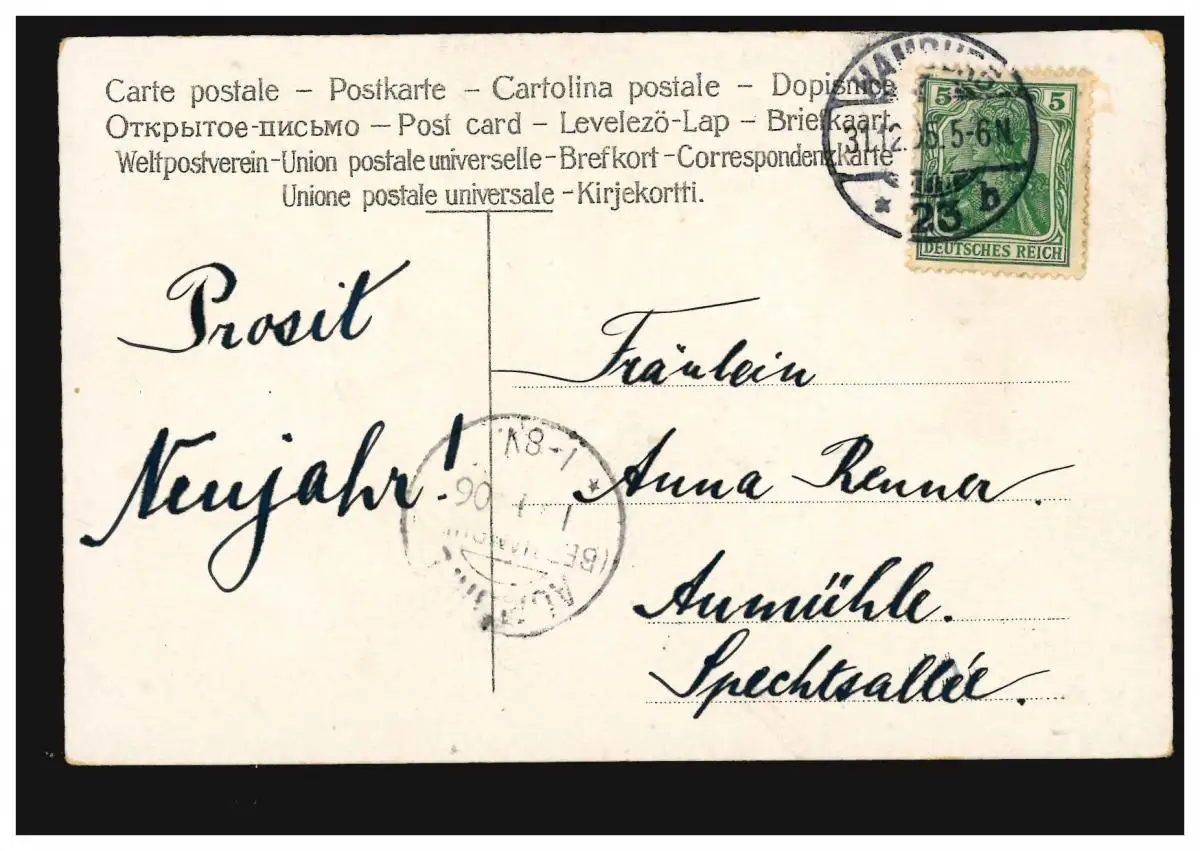 Carte postale – Postkarte – Cartolina postale – Dopisnice
Открытое-письмо – Post card – Levelezö-Lap – Briefkaart
Weltpostverein-Union postale universelle-Brefkort-Correspondenzkarte
Unione postale universale -Kirjekortti.
5 5
31.12.05.5-6N
* 23 b
DEUTSCHES REICH
Prosit
Neujahr!
Fräulein
Anna Renner.
Aumühle.
Spechtsallée.
1-8V
*
1 1 06